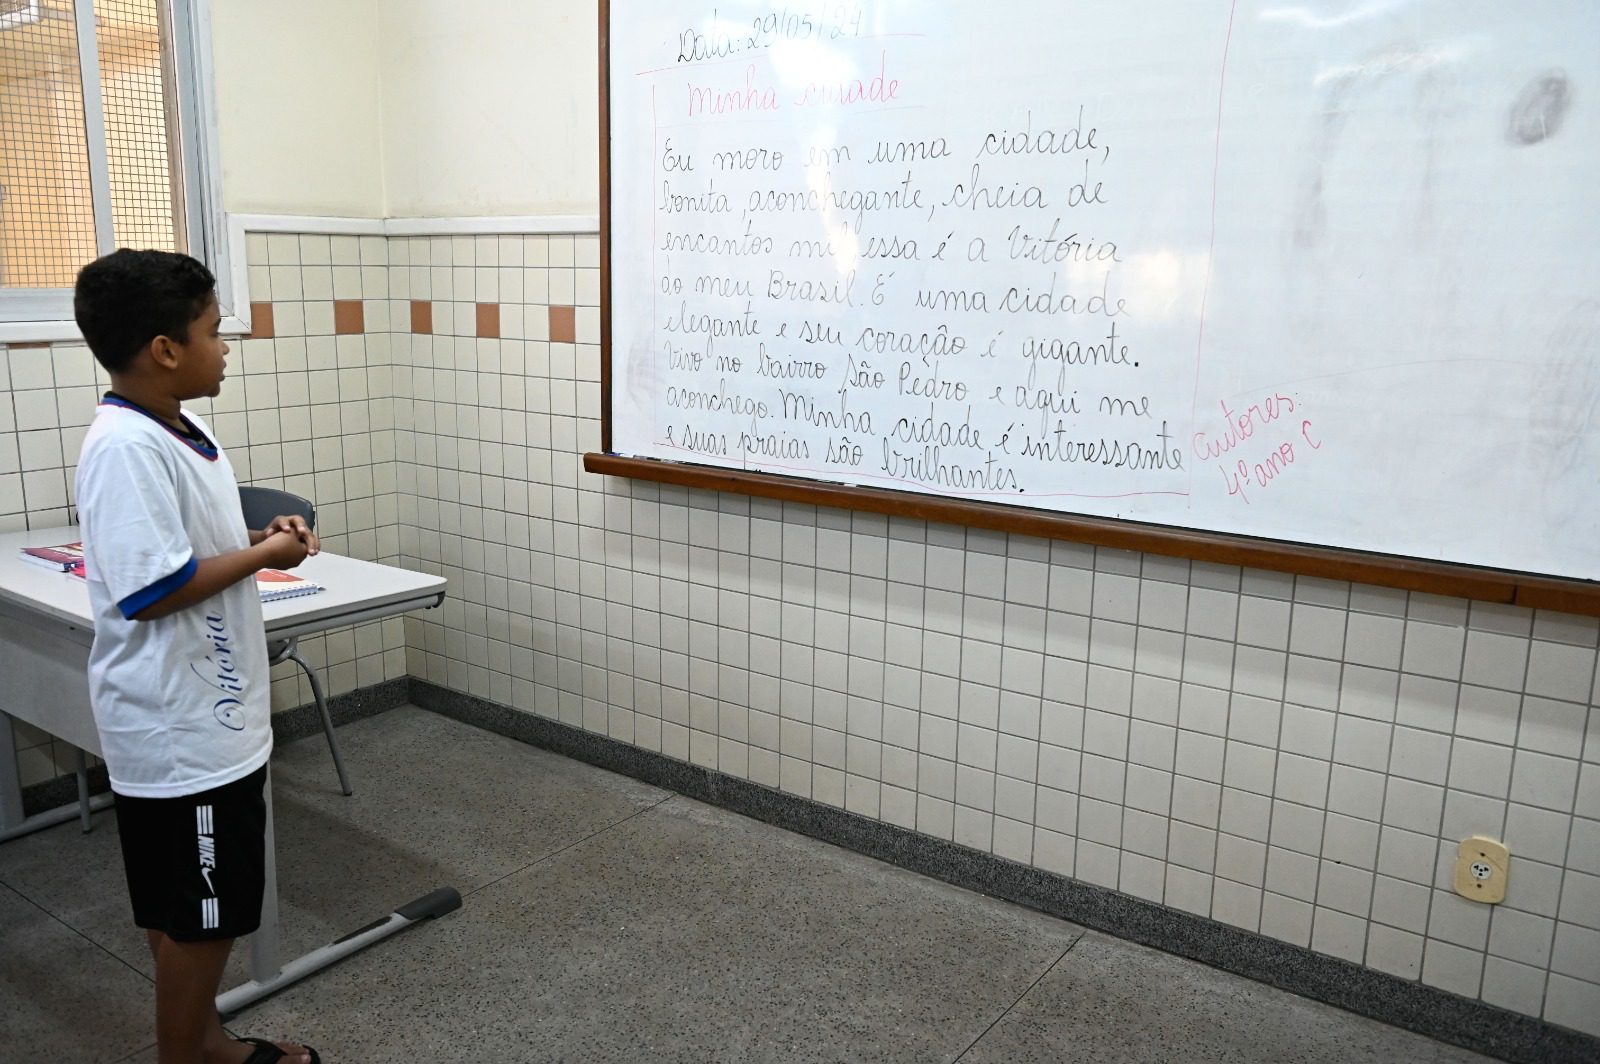 Data: 29/05/24
Minha cidade
Eu moro em uma cidade,
bonita, aconchegante, cheia de
encantos mil essa é a Vitória
do meu Brasil. É uma cidade
elegante e seu coração é gigante.
Vivo no bairro São Pedro e aqui me
aconchego. Minha cidade é interessante
e suas praias são brilhantes.
Autores:
4º ano C
Vitória
NIKE